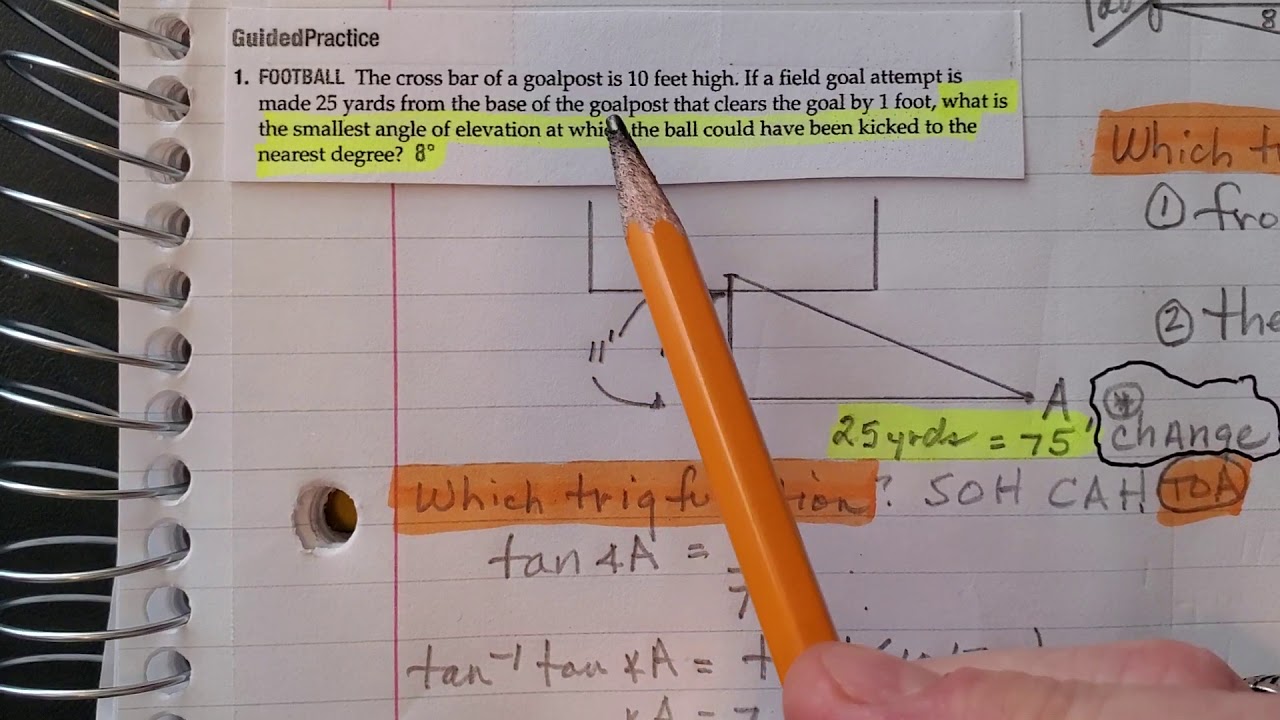 GuidedPractice
1. FOOTBALL The cross bar of a goalpost is 10 feet high. If a field goal attempt is
made 25 yards from the base of the goalpost that clears the goal by 1 foot, what is
the smallest angle of elevation at which the ball could have been kicked to the
nearest degree? 8°
8
Which t
① fro
② the
11'
A
25 yrds = 75'
* change
Which trig function? SOH CAH TOA
tan ∡A =
7
tan⁻¹ tan ∡A = t
∡A = 7